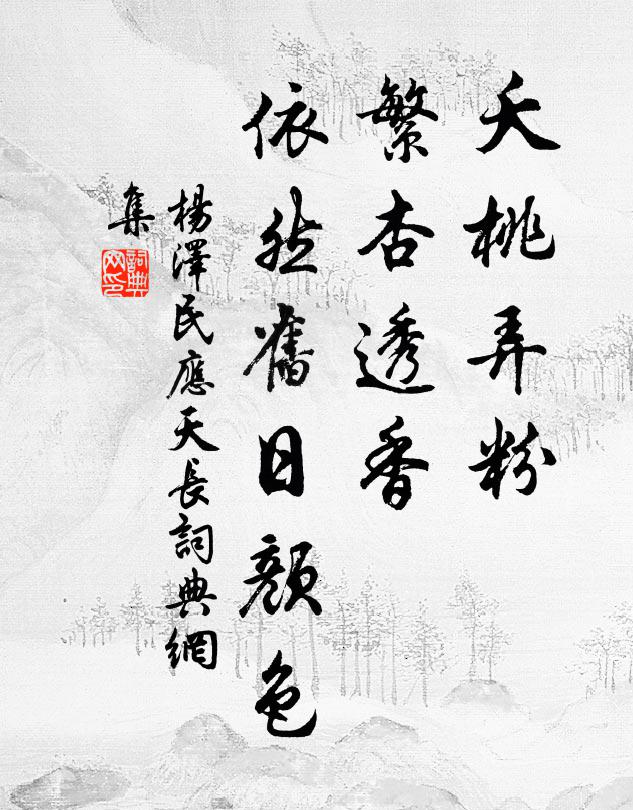 夭桃弄粉
繁杏透香
依然舊日顏色
楊澤民應天長詞典網
集
詞典
网